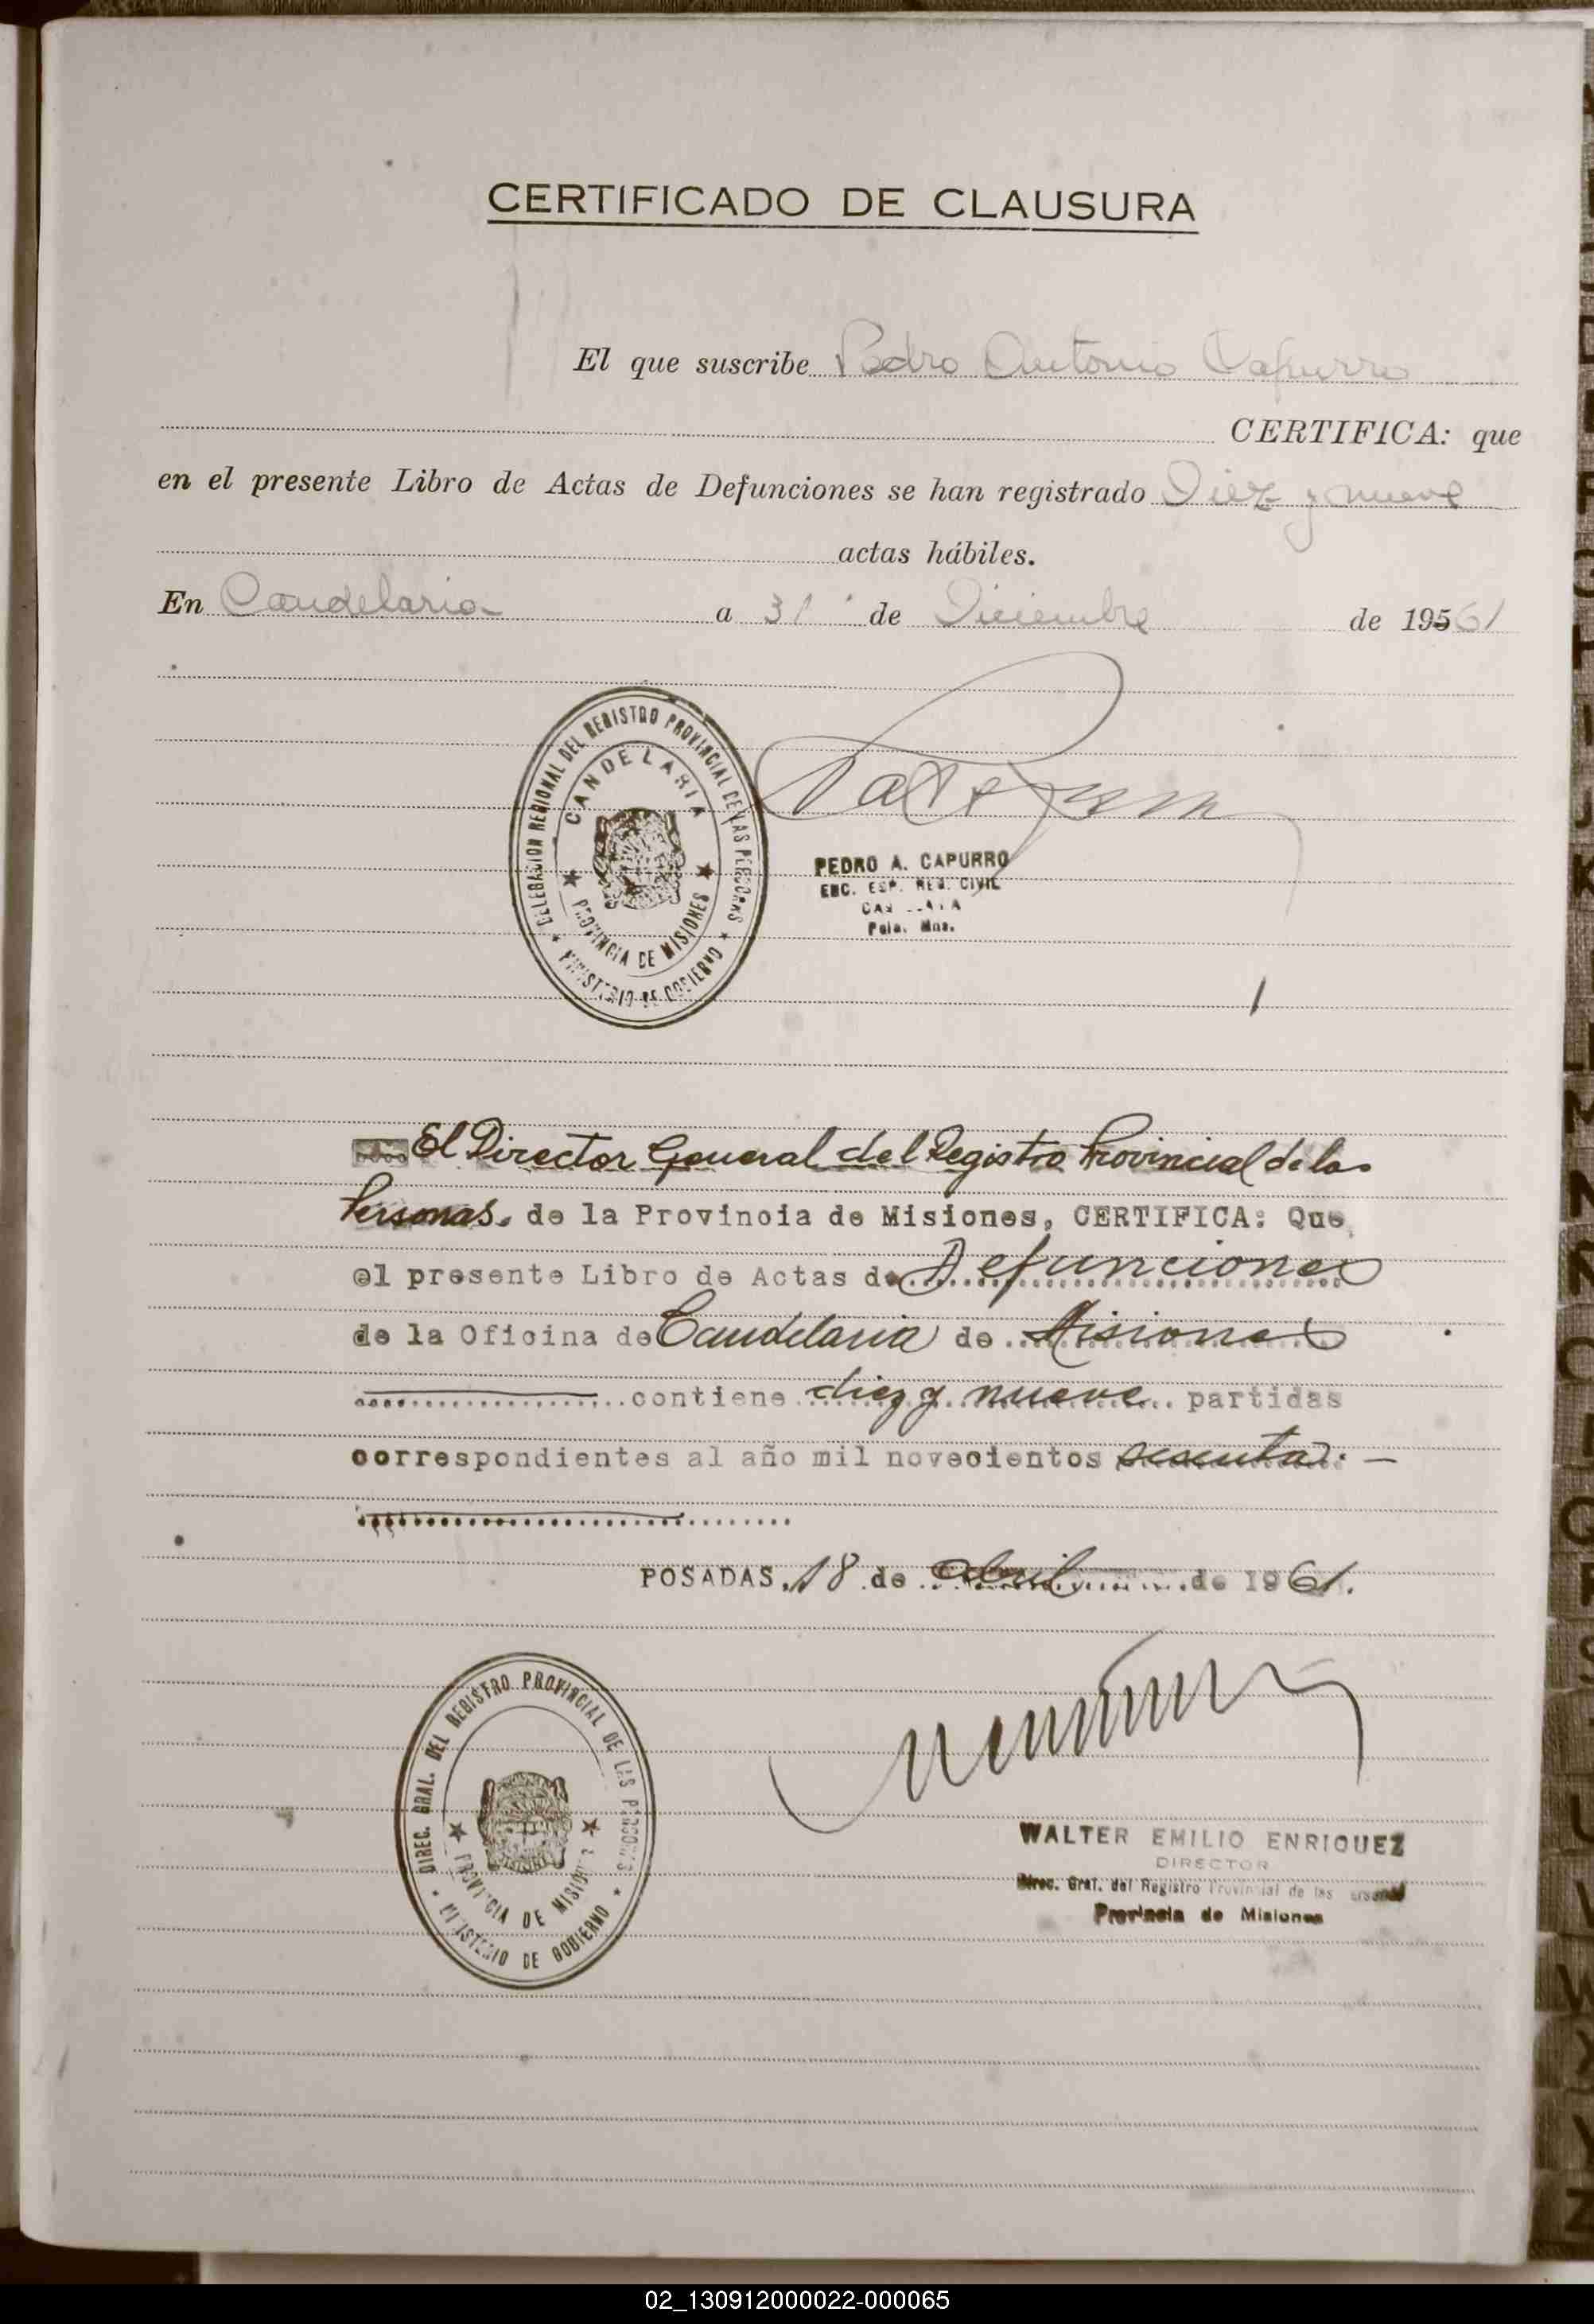 CERTIFICADO DE CLAUSURA
El que suscribe Pedro Antonio Capurro
CERTIFICA: que
en el presente Libro de Actas de Defunciones se han registrado Diez y nueve
actas hábiles.
En Candelaria a 31 de Diciembre de 195 61
DELEGACION REGIONAL DEL REGISTRO PROVINCIAL DE LAS PERSONAS
CANDELARIA
PROVINCIA DE MISIONES
MINISTERIO DE GOBIERNO
PEDRO A. CAPURRO
ENC. ESP. REG. CIVIL
El Director General del Registro Provincial de las
Personas, de la Provincia de Misiones, CERTIFICA: Que
el presente Libro de Actas de Defunciones
de la Oficina de Candelaria de Misiones
contiene diez y nueve partidas
correspondientes al año mil novecientos sesenta. —
POSADAS, 18 de abril de 1961.
DIREC. GRAL. DEL REGISTRO PROVINCIAL DE LAS PERSONAS
PROVINCIA DE MISIONES
MINISTERIO DE GOBIERNO
WALTER EMILIO ENRIQUEZ
DIRECTOR
Direc. Gral. del Registro Provincial de las Personas
Provincia de Misiones
02_130912000022-000065